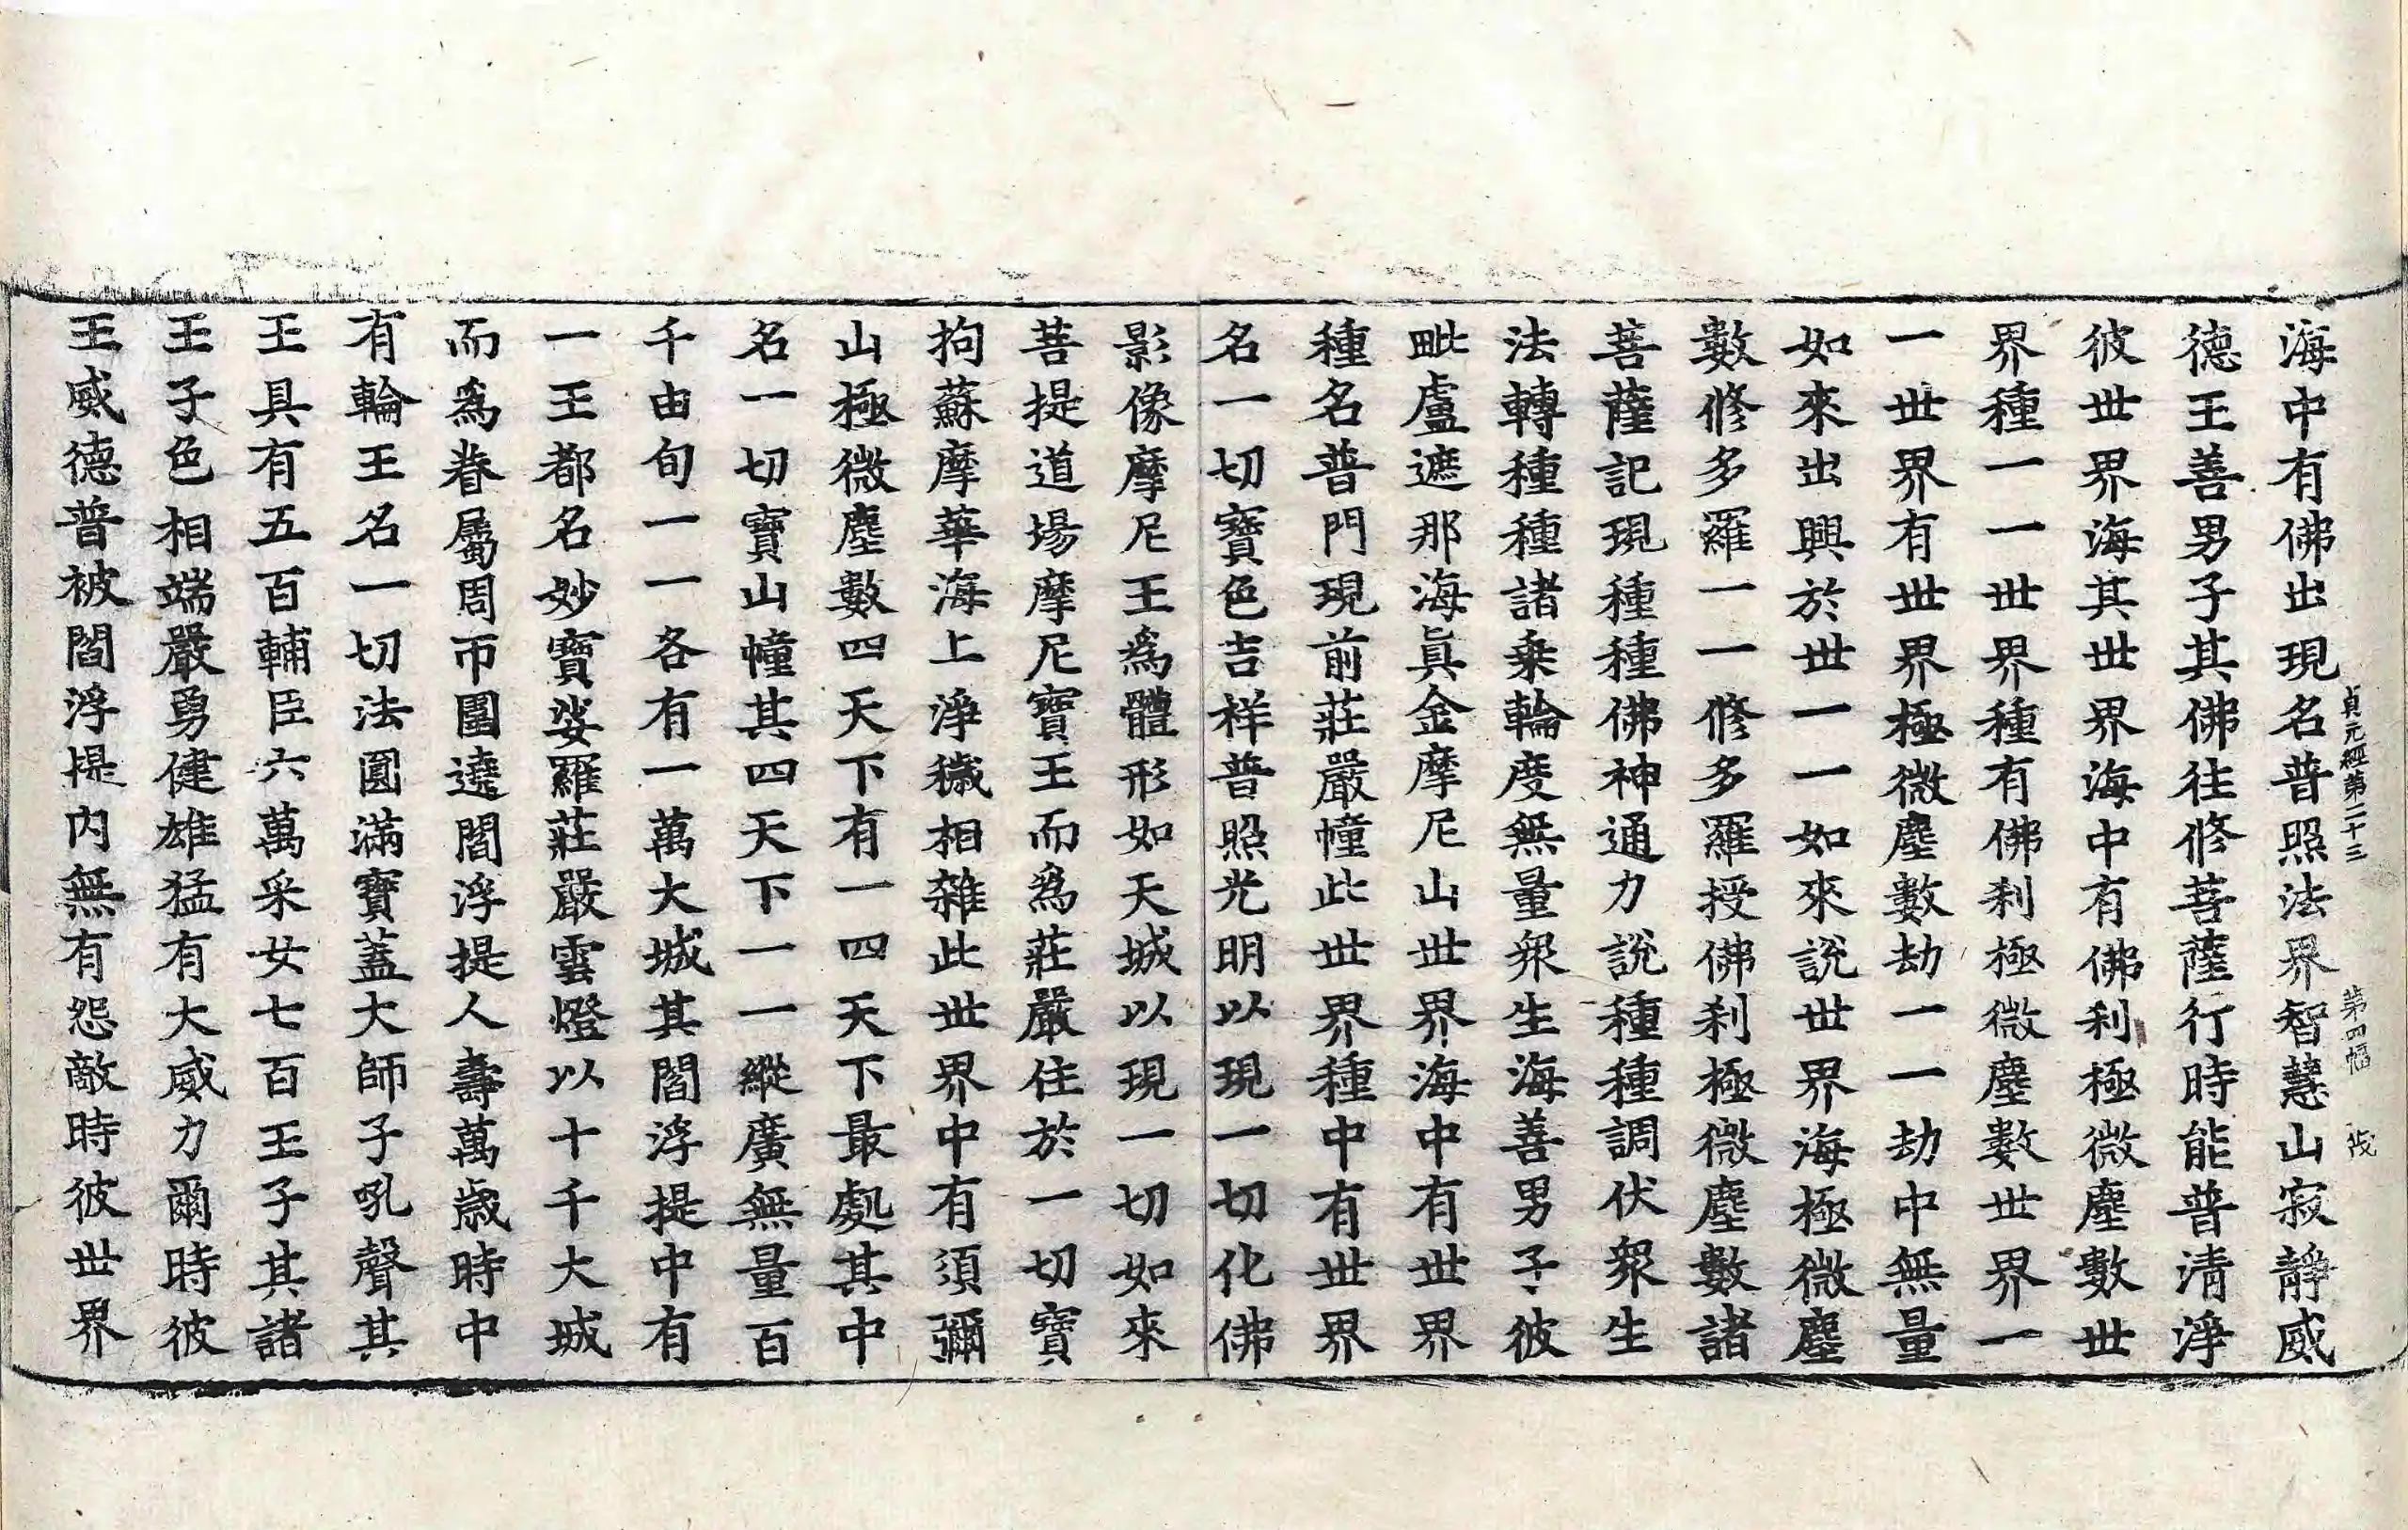 海中有佛出現名普照法界智慧山寂靜威
貞元經第二十三 第四幅 茂
德王善男子其佛往修菩薩行時能普清淨
彼世界海其世界海中有佛刹極微塵數世
界種一一世界種有佛刹極微塵數世界一
一世界有世界極微塵數劫一一劫中無量
如來出興於世一一如來說世界海極微塵
數修多羅一一修多羅授佛刹極微塵數諸
菩薩記現種種佛神通力說種種調伏衆生
法轉種種諸乗輪度無量衆生海善男子彼
毗盧遮那海真金摩尼山世界海中有世界
種名普門現前莊嚴幢此世界種中有世界
名一切寶色吉祥普照光明以現一切化佛
影像摩尼王爲體形如天城以現一切如來
菩提道場摩尼寶王而爲莊嚴住於一切寶
拘蘇摩華海上淨穢相雜此世界中有須彌
山極微塵數四天下有一四天下最處其中
名一切寶山幢其四天下一一縱廣無量百
千由旬一一各有一萬大城其閻浮提中有
一王都名妙寶娑羅莊嚴雲燈以十千大城
而爲眷屬周帀圍遶閻浮提人壽萬歲時中
有輪王名一切法圓滿寶蓋大師子吼聲其
王具有五百輔臣六萬采女七百王子其諸
王子色相端嚴勇健雄猛有大威力爾時彼
王威德普被閻浮提内無有怨敵時彼世界